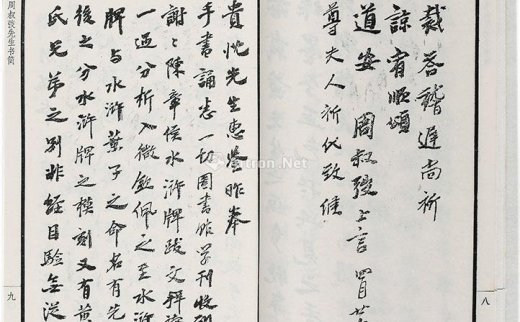 八
裁答稽遲尚祈
諒宥順頌
道安 周叔弢上言 四月廿
尊夫人祈代致候
貴忱先生惠鑒昨奉
手書誦悉一切圖書館學刊收到
謝〻陳章侯水滸牌跋文拜讀
一過分析入微欽佩之至水滸
牌與水滸葉子之命名有先
後之分水滸牌之模刻又有黃
氏兄弟之別非經目驗無從
周叔弢先生书简
九